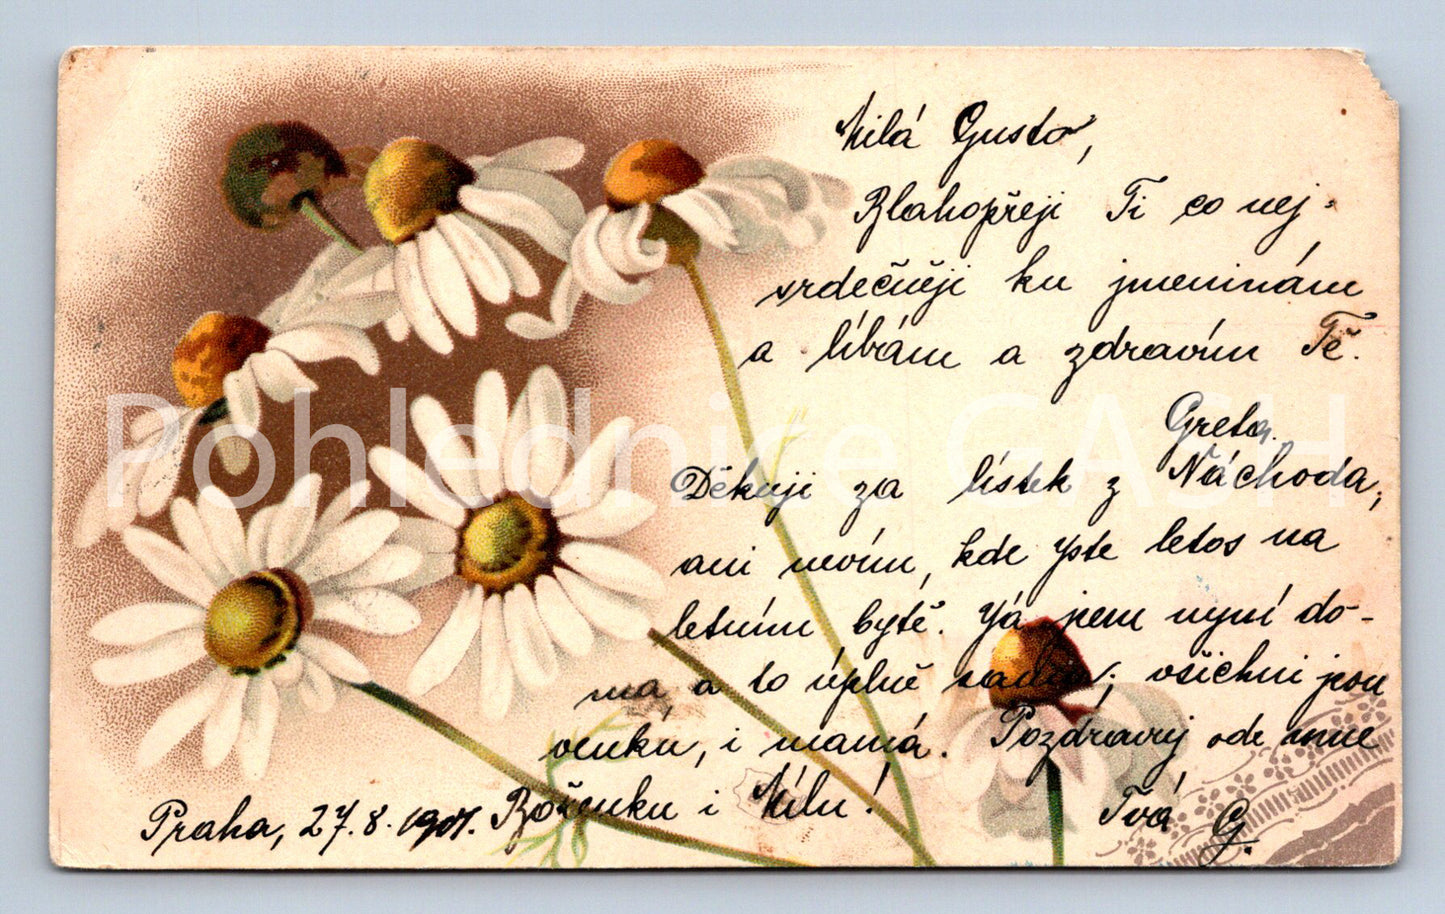 Milá Gusto,
Blahopřeji Ti co nej-
srdečněji ku jmeninám
a líbám a zdravím Tě.
Greta.
Děkuji za lístek z Náchoda,
ani nevím, kde jste letos na
letním bytě. Já jsem nyní do-
ma a to úplně sama; všichni jsou
venku, i mamá. Pozdravuj ode mne
Boženku i Mílu!
Tvá G.
Praha, 27.8.1901.
Pohlednice GASH